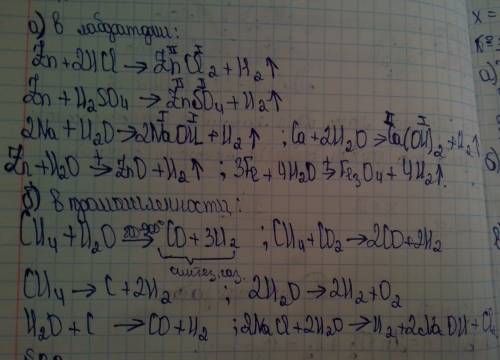 а) в лаборатории:
Zn+2HCl → ZnCl₂+H₂↑
Zn+H₂SO₄ → ZnSO₄+H₂↑
2Na+H₂O → 2NaOH+H₂↑ ; Ca+2H₂O → Ca(OH)₂+H₂↑
Zn+H₂O → ZnO+H₂↑ ; 3Fe+4H₂O → Fe₃O₄+4H₂↑.
б) в промышленности:
CH₄+H₂O → CO+3H₂ ; CH₄+CO₂ → 2CO+2H₂
синтез. газ.
CH₄ → C+2H₂ ; 2H₂O → 2H₂+O₂
H₂O+C → CO+H₂ ; 2NaCl+2H₂O → H₂+2NaOH+Cl